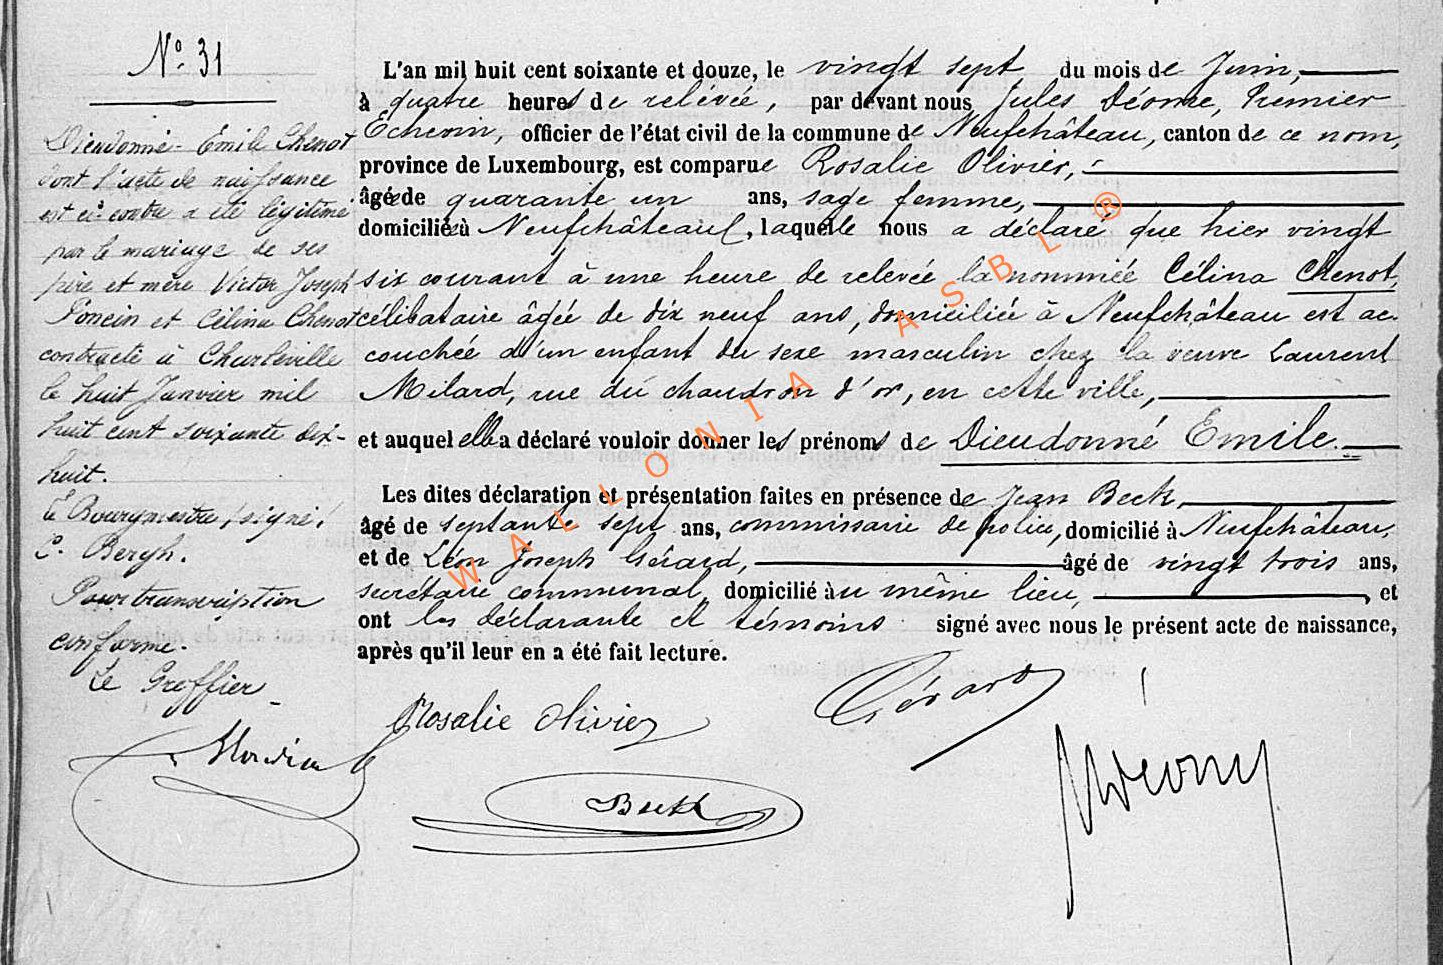 N° 31
Dieudonné-Emile Chenot
dont l'acte de naissance
est ci-contre a été légitimé
par le mariage de ses
père et mère Victor Joseph
Poncin et Célina Chenot
contracté à Charleville
le huit Janvier mil
huit cent soixante dix-
huit.
Le Bourgmestre, (signé)
C. Bergh.
Pour transcription
conforme.
Le Greffier
L'an mil huit cent soixante et douze, le vingt sept du mois de Juin,
à quatre heures de relevée, par devant nous Jules Déome, Premier
Echevin, officier de l'état civil de la commune de Neufchâteau, canton de ce nom,
province de Luxembourg, est comparue Rosalie Olivier,
âgée de quarante un ans, sage femme,
domiciliée à Neufchâteau, laquelle nous a déclaré que hier vingt
six courant à une heure de relevée la nommée Célina Chenot,
célibataire âgée de dix neuf ans, domiciliée à Neufchâteau est ac-
couchée d'un enfant du sexe masculin chez la veuve Laurent
Milard, rue du chaudron d'or, en cette ville,
et auquel elle a déclaré vouloir donner les prénoms de Dieudonné Emile.
Les dites déclaration et présentation faites en présence de Jean Beck,
âgé de septante sept ans, commissaire de police, domicilié à Neufchâteau,
et de Léon Joseph Gérard, âgé de vingt trois ans,
secrétaire communal, domicilié au même lieu, et
ont les déclarante et témoins signé avec nous le présent acte de naissance,
après qu'il leur en a été fait lecture.
Rosalie Olivier
Gérard
Beck
JDéome
WALLONIA ASBL ®